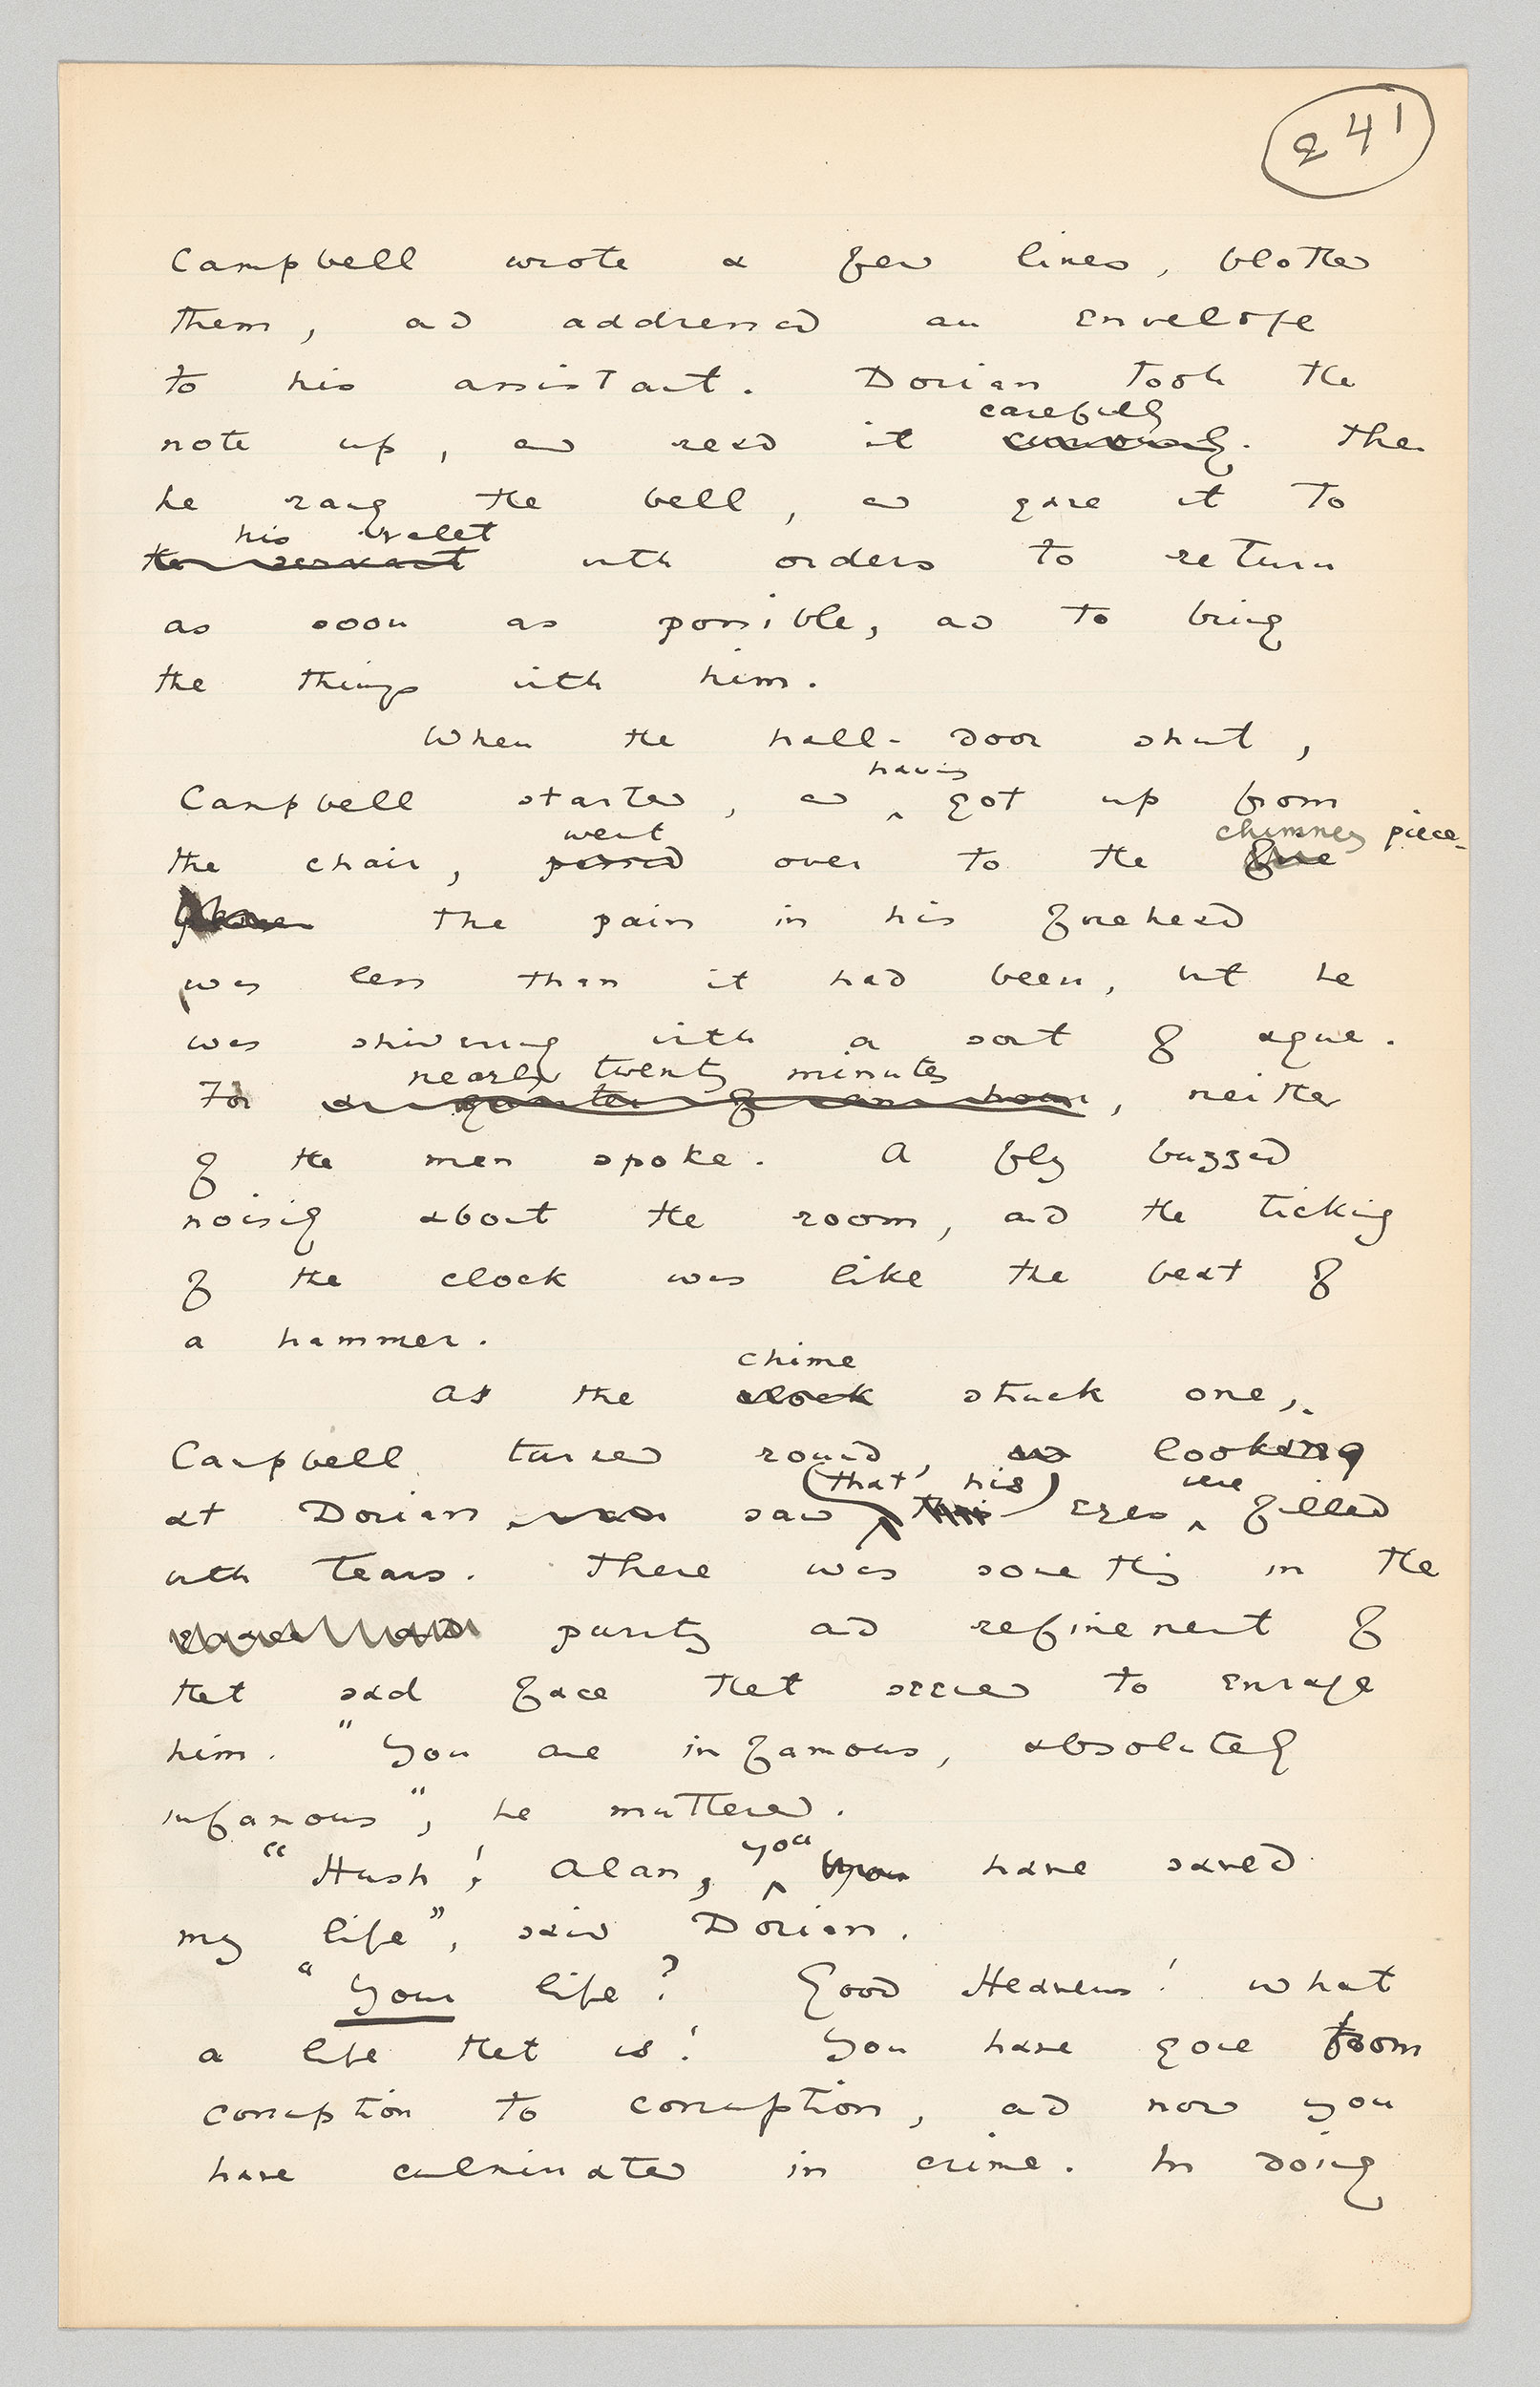 241
Campbell wrote a few lines, blotted
them, and addressed an envelope
to his assistant. Dorian took the
carefully
note up, and read it . Then
he rang the bell, and gave it to
his valet
the servant with orders to return
as soon as possible, and to bring
the things with him.
When the hall-door shut,
having
Campbell started, and ^ got up from
went chimney piece.
the chair, passed over to the fire
place. The pain in his forehead
was less than it had been, but he
was shivering with a sort of ague.
nearly twenty minutes
For a quarter of an hour, neither
of the men spoke. A fly buzzed
noisily about the room, and the ticking
of the clock was like the beat of
a hammer.
chime
As the clock struck one,
Campbell turned round, and looking
(that his) were
at Dorian, saw ^ this eyes ^ filled
with tears. There was something in the
purity and refinement of
that sad face that seemed to enrage
him. "You are infamous, absolutely
infamous", he muttered.
you
"Hush! Alan, ^ you have saved
my life", said Dorian.
"Your life? Good Heavens! what
a life that is! You have gone from
corruption to corruption, and now you
have culminated in crime. In doing